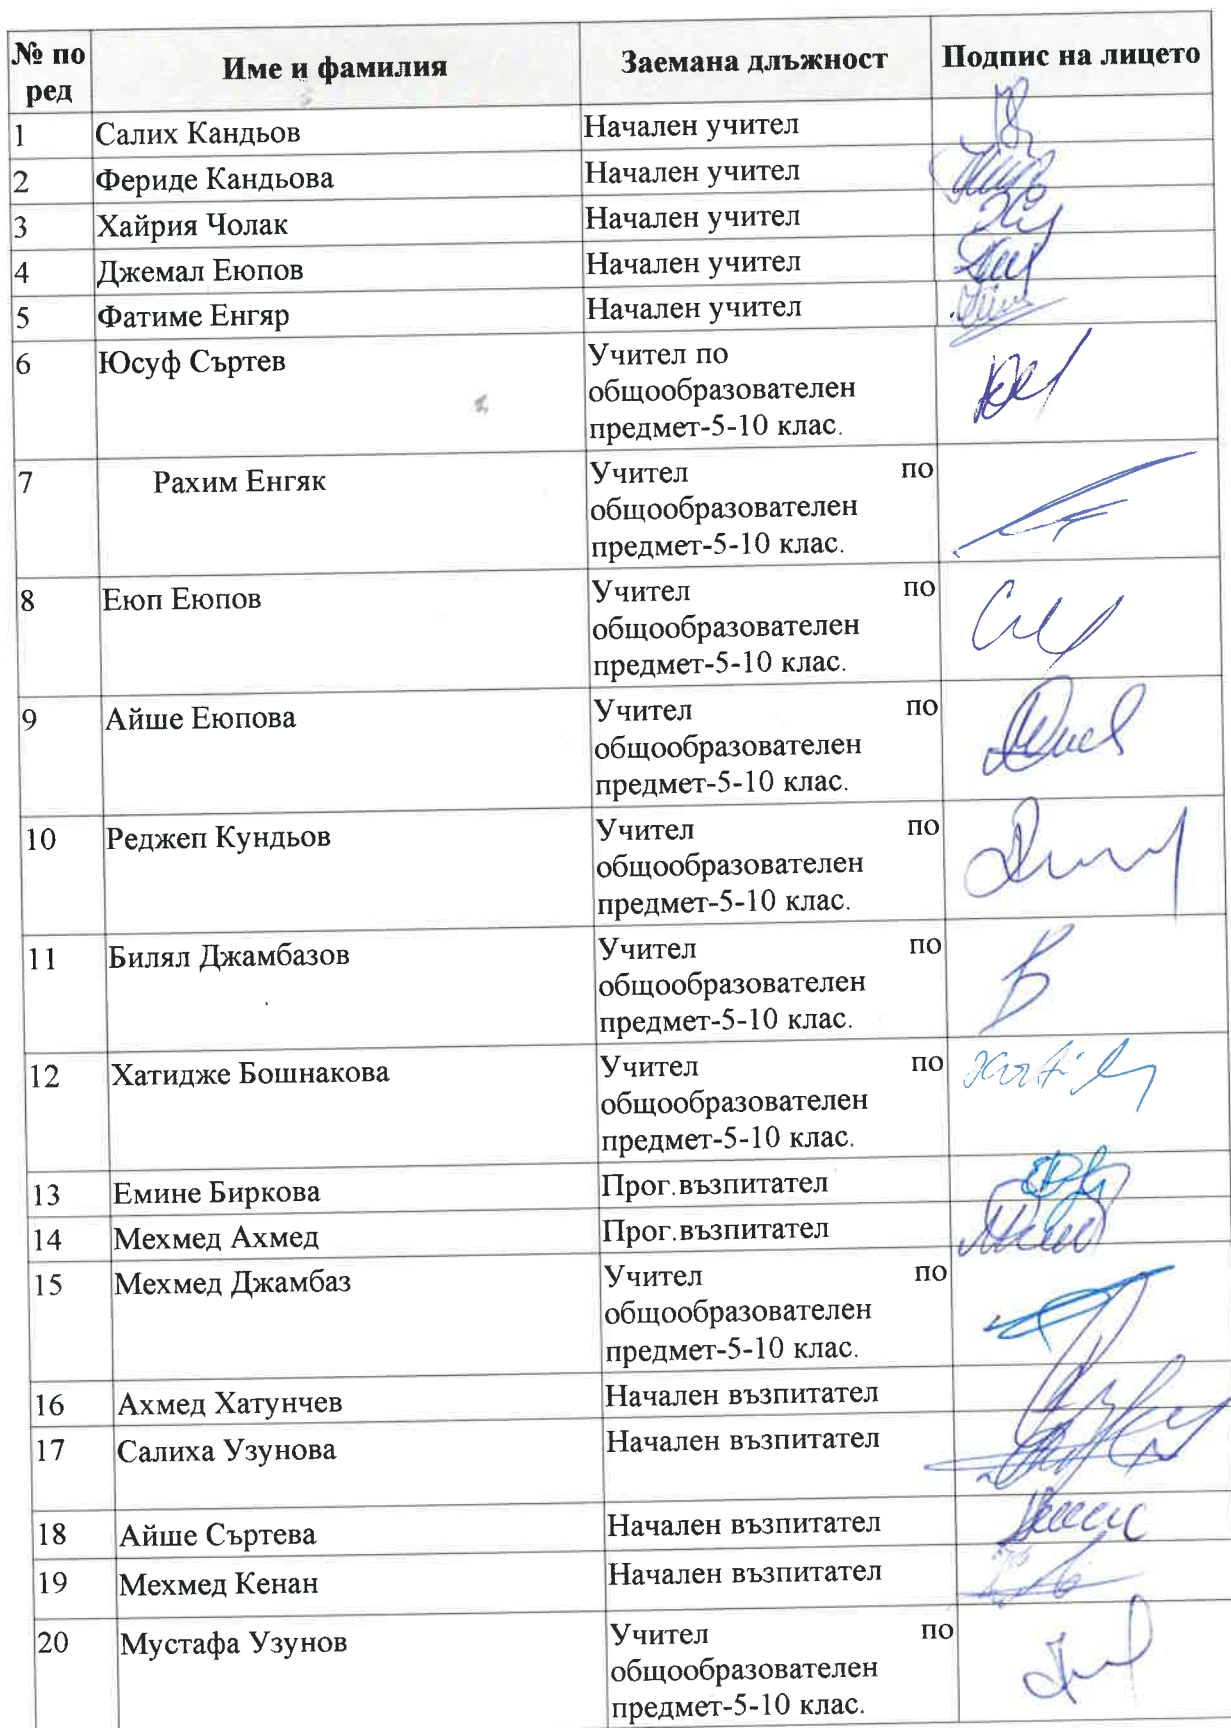 № по ред Име и фамилия Заемана длъжност Подпис на лицето
1 Салих Кандьов Начален учител
2 Фериде Кандьова Начален учител
3 Хайрия Чолак Начален учител
4 Джемал Еюпов Начален учител
5 Фатиме Енгяр Начален учител
6 Юсуф Съртев Учител по
общообразователен
предмет-5-10 клас.
7 Рахим Енгяк Учител по
общообразователен
предмет-5-10 клас.
8 Еюп Еюпов Учител по
общообразователен
предмет-5-10 клас.
9 Айше Еюпова Учител по
общообразователен
предмет-5-10 клас.
10 Реджеп Кундьов Учител по
общообразователен
предмет-5-10 клас.
11 Билял Джамбазов Учител по
общообразователен
предмет-5-10 клас.
12 Хатидже Бошнакова Учител по
общообразователен
предмет-5-10 клас.
13 Емине Биркова Прог.възпитател
14 Мехмед Ахмед Прог.възпитател
15 Мехмед Джамбаз Учител по
общообразователен
предмет-5-10 клас.
16 Ахмед Хатунчев Начален възпитател
17 Салиха Узунова Начален възпитател
18 Айше Съртева Начален възпитател
19 Мехмед Кенан Начален възпитател
20 Мустафа Узунов Учител по
общообразователен
предмет-5-10 клас.